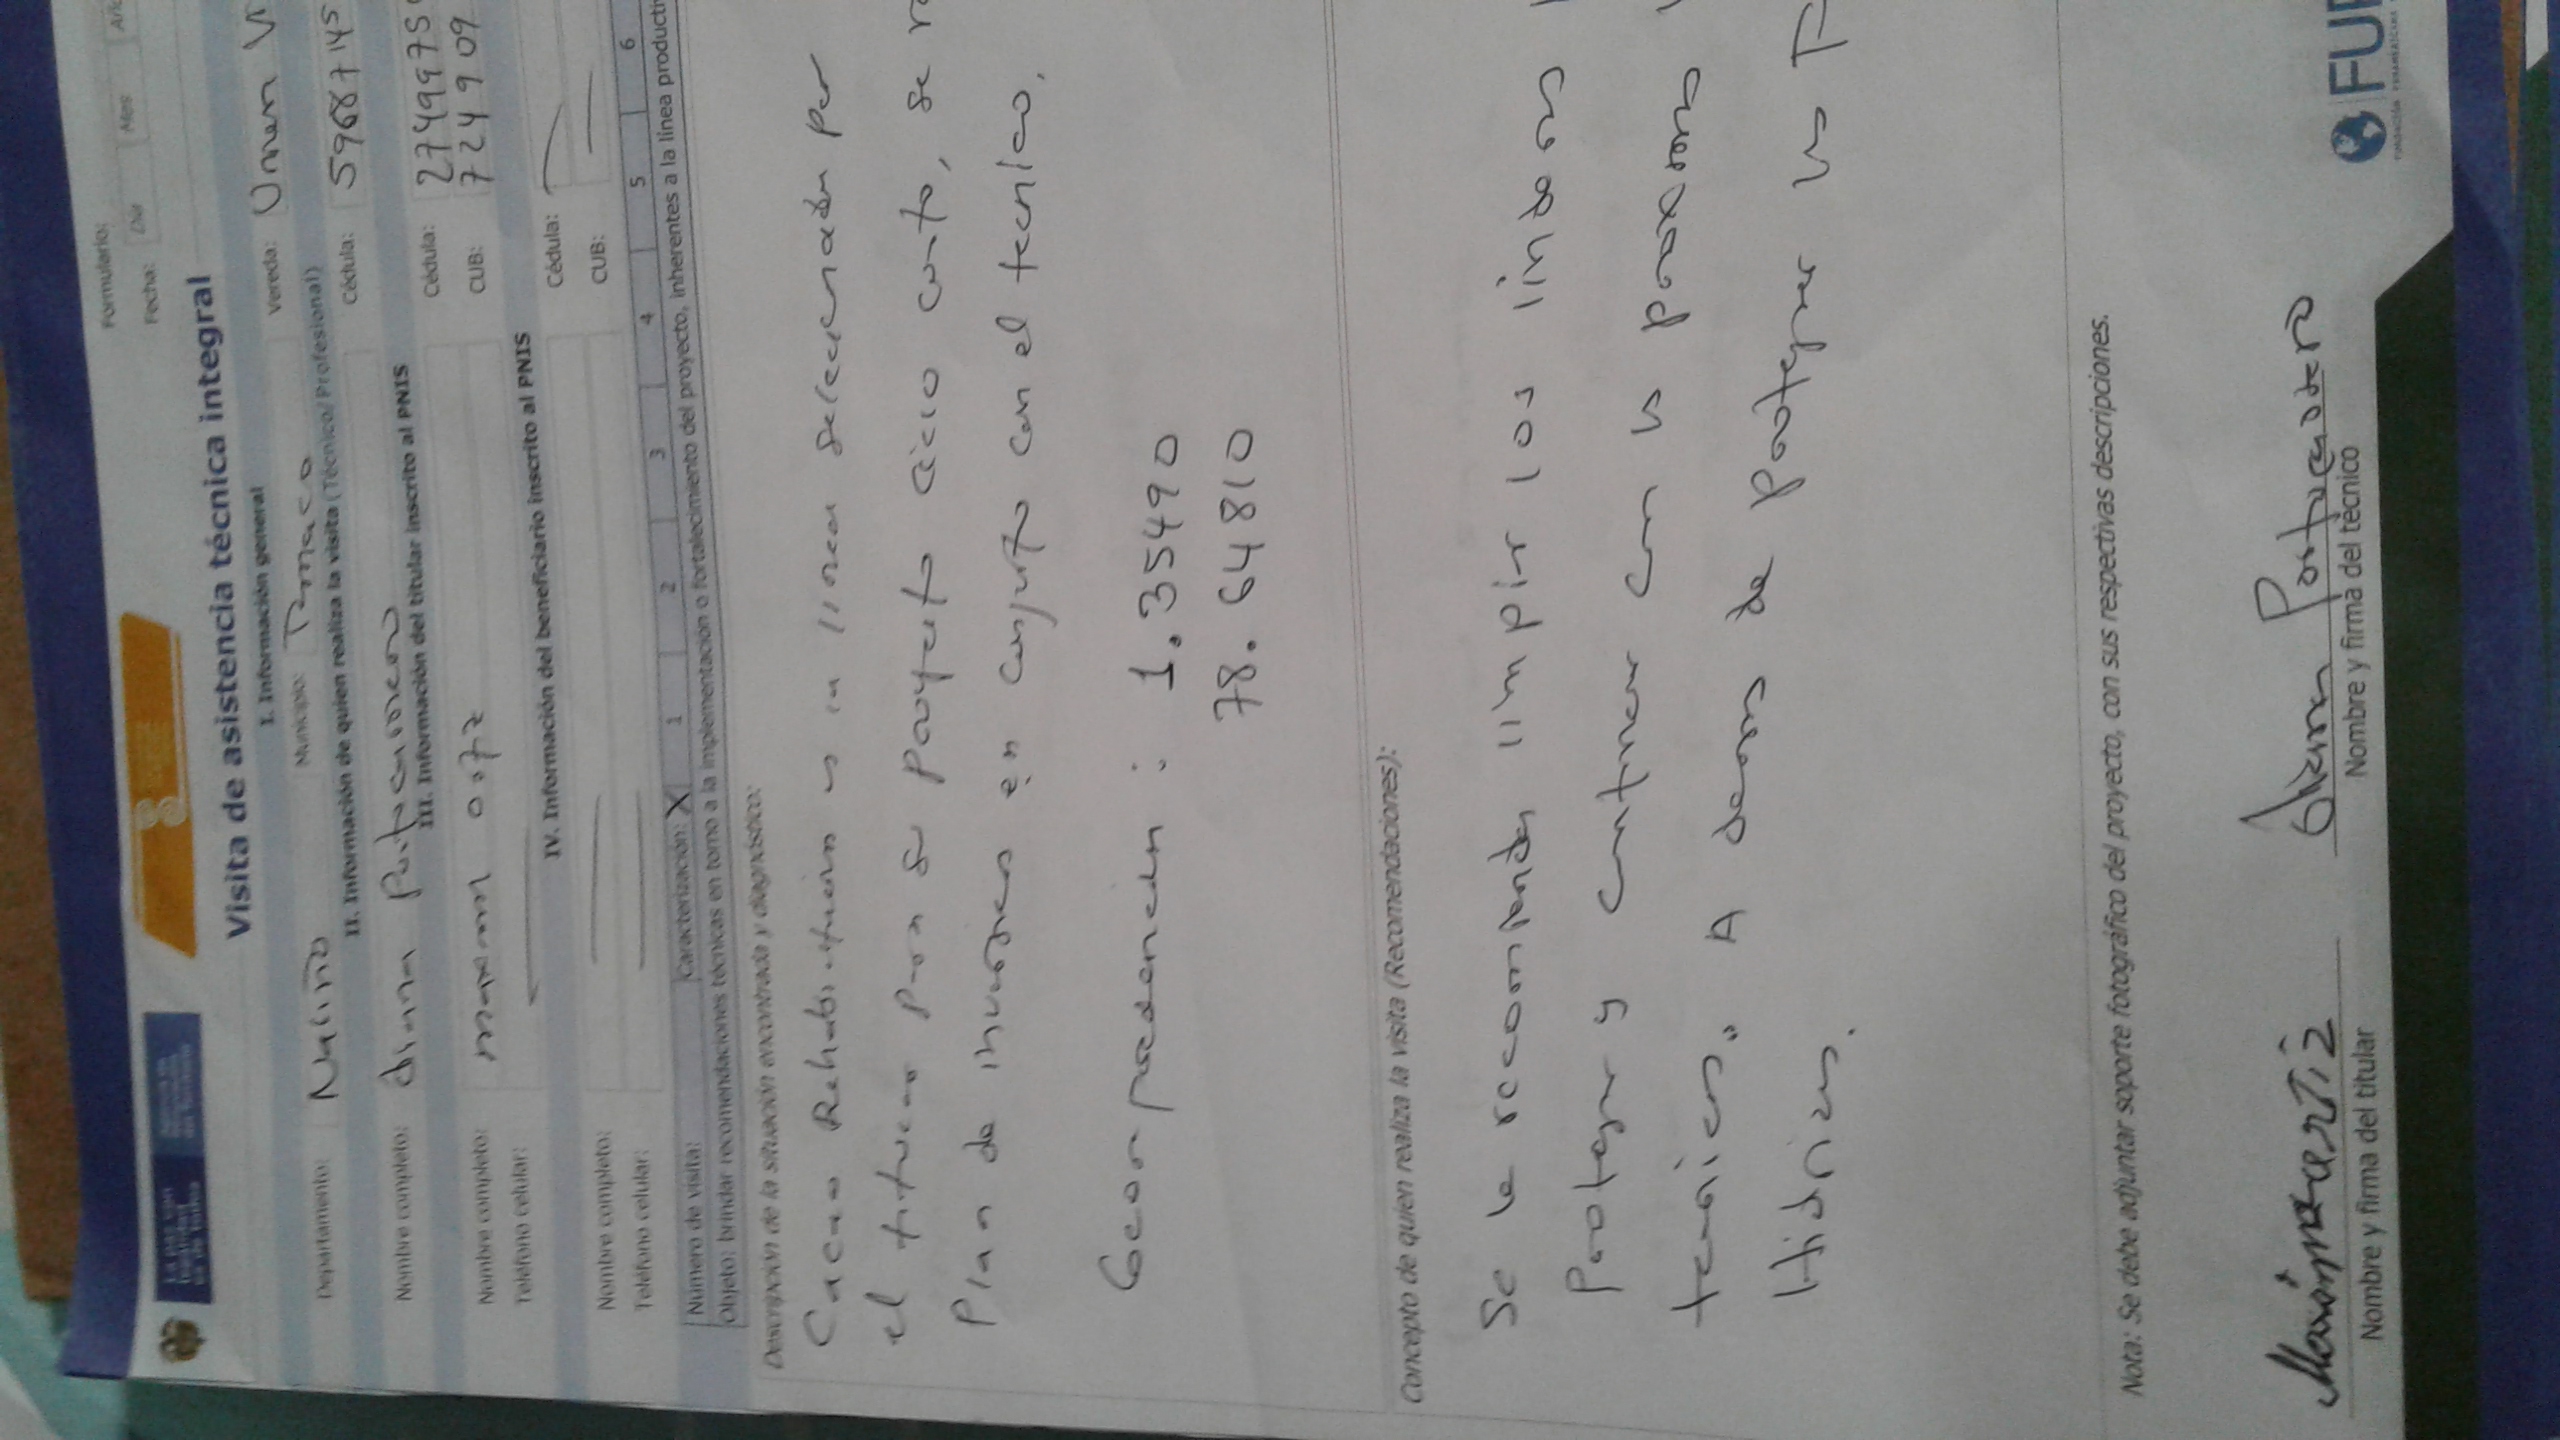 Formulario:
Fecha: Día Mes Año
Visita de asistencia técnica integral
I. Información general
Departamento: Nariño Municipio: Tumaco Vereda:
II. Información de quien realiza la visita (Técnico/Profesional)
Nombre completo: Diana Portocarrero Cédula: 59687145
III. Información del titular inscrito al PNIS
Nombre completo: maximo ortiz Cédula: 27499975
Teléfono celular: CUB: 724909
IV. Información del beneficiario inscrito al PNIS
Nombre completo: Cédula:
Teléfono celular: CUB:
Número de visita: Caracterización: X 1 2 3 4 5 6
Objeto: brindar recomendaciones técnicas en torno a la implementación o fortalecimiento del proyecto, inherentes a la línea producti
Descripción de la situación encontrada y diagnóstico:
Cacao Rehabilitación es la linea seleccionada por
el titular para su proyecto ciclo corto, se
Plan de inversiones en conjunto con el tecnico.
Georreferenciación: 1.35490
78.64810
Concepto de quien realiza la visita (Recomendaciones):
Se le recomienda limpiar los linderos
Proteger y continuar con los proximos
tecnicos. A demas de proteger las
Hidricas.
Nota: Se debe adjuntar soporte fotográfico del proyecto, con sus respectivas descripciones.
Diana Portocarrero
Nombre y firma del titular Nombre y firma del técnico
FUP